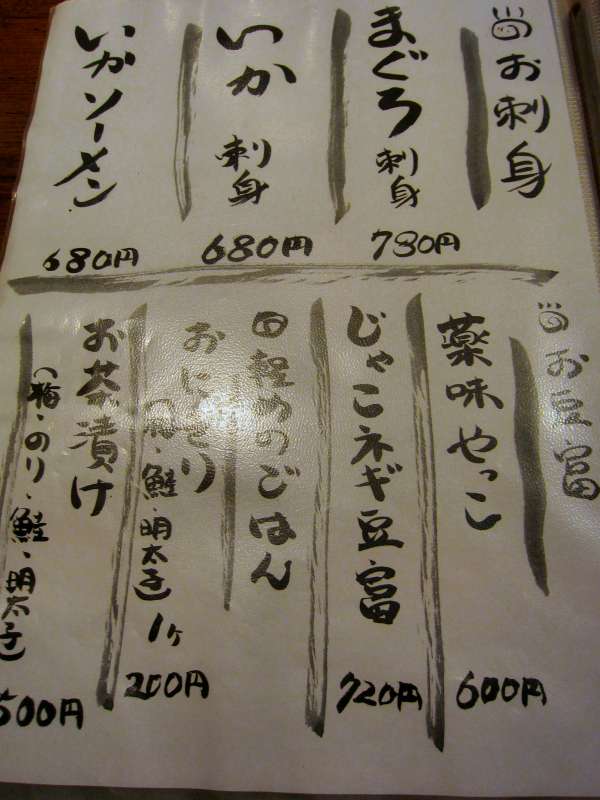 お刺身
まぐろ刺身
780円
いか刺身
680円
いかソーメン
680円
お豆富
薬味やっこ
600円
じゃこネギ豆富
720円
軽めのごはん
おにぎり
(梅・鮭・明太子) 1ヶ
200円
お茶漬け
(梅・のり・鮭・明太子)
500円